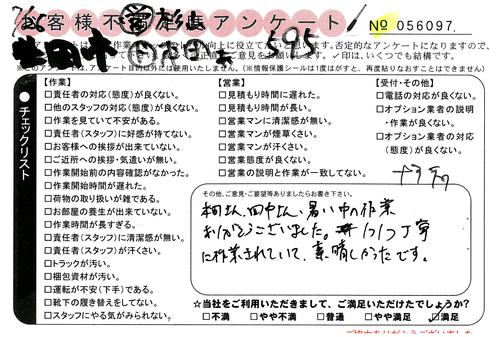 お客様不満足度アンケート
№ 056097
アンケート目的以外には使用いたしません。(※情報保護シールは1度はがすと、再度貼りなおすことはできません)
チェックリスト
【作業】
□責任者の対応(態度)が良くない。
□他のスタッフの対応(態度)が良くない。
□作業を見ていて不安がある。
□責任者(スタッフ)に好感が持てない。
□お客様への挨拶が出来ていない。
□ご近所への挨拶・気遣いが無い。
□作業開始前の内容確認がなかった。
□作業開始時間が遅れた。
□荷物の取り扱いが雑である。
□お部屋の養生が出来ていない。
□作業時間が長すぎる。
□責任者(スタッフ)に清潔感が無い。
□責任者(スタッフ)が汗くさい。
□トラックが汚い。
□梱包資材が汚い。
□運転が不安(下手)である。
□靴下の履き替えをしてない。
□スタッフにやる気がみられない。
【営業】
□見積もり時間に遅れた。
□見積もり時間が長い。
□営業マンに清潔感が無い。
□営業マンが煙草くさい。
□営業マンが汗くさい。
□営業態度が良くない。
□営業の説明と作業が一致してない。
【受付・その他】
□電話の対応が良くない。
□オプション業者の説明
・作業が良くない。
□オプション業者の対応
(態度)が良くない。
その他、ご意見・ご要望等ありましたらお書き下さい。
本田さん、田中さん、暑い中の作業
ありがとうございました。 1つ1つ丁寧
に作業されていて、素晴しかったです。
☆当社をご利用いただきまして、ご満足いただけたでしょうか?
□不満 □やや不満 □普通 □やや満足 ☑満足
ご協力ありがとうございました